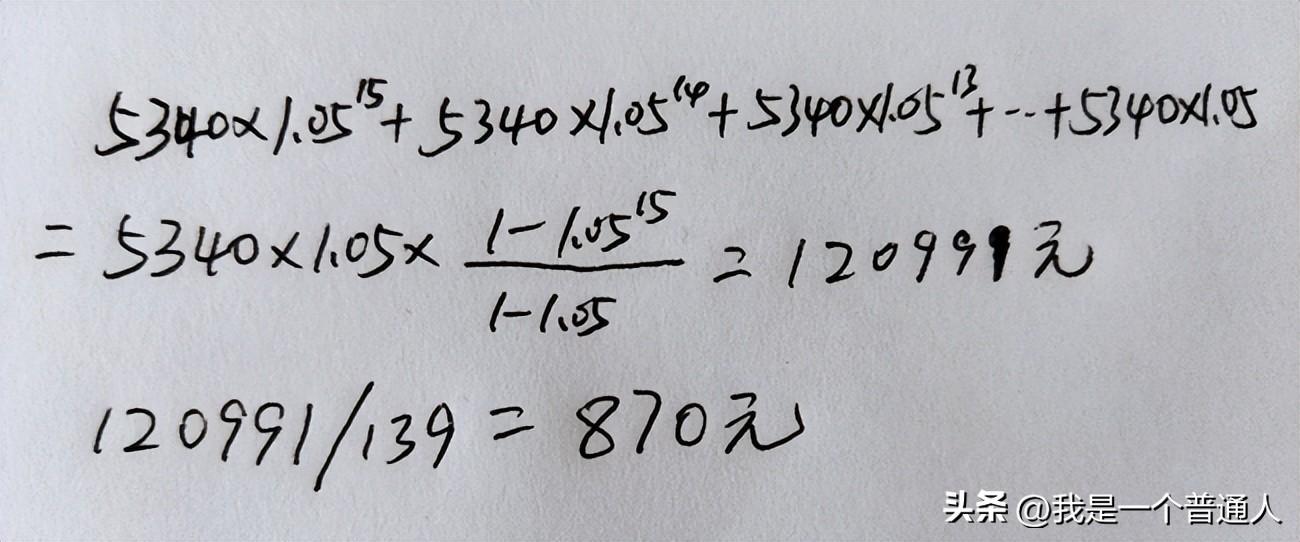 5340×1.05¹⁵+5340×1.05¹⁴+5340×1.05¹³+…+5340×1.05
=5340×1.05×(1-1.05¹⁵)/(1-1.05)=120991元
120991/139=870元
头条 @我是一个普通人